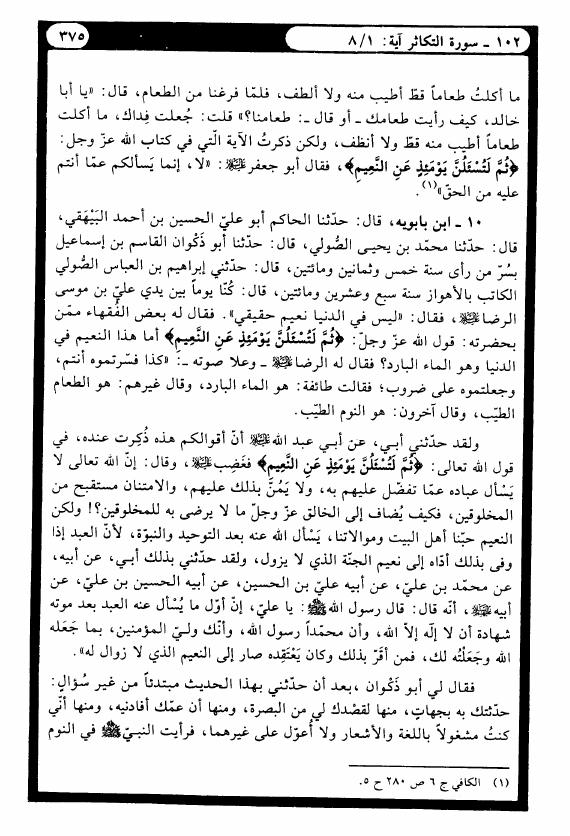 ١٠٢ ـ سورة التكاثر آية: ٨/١
٣٧٥
ما أكلتُ طعاماً قطّ أطيب منه ولا ألطف، فلمّا فرغنا من الطعام، قال: «يا أبا
خالد، كيف رأيت طعامك ـ أو قال ـ: طعامنا؟» قلت: جُعلت فِداك، ما أكلت
طعاماً أطيب منه قطّ ولا أنظف، ولكن ذكرتُ الآية الّتي في كتاب الله عزّ وجل:
﴿ثُمَّ لَتُسْئَلُنَّ يَوْمَئِذٍ عَنِ النَّعِيمِ﴾، فقال أبو جعفر ﷺ: «لا، إنما يَسألكم عمّا أنتم
عليه من الحقّ»(١).
١٠ ـ ابن بابويه، قال: حدّثنا الحاكم أبو عليّ الحسين بن أحمد البَيْهَقي،
قال: حدّثنا محمّد بن يحيى الصُّولي، قال: حدّثنا أبو ذَكْوان القاسم بن إسماعيل
بسُرّ من رأى سنة خمس وثمانين ومائتين، قال: حدّثني إبراهيم بن العباس الصُّولي
الكاتب بالأهواز سنة سبع وعشرين ومائتين، قال: كُنّا يوماً بين يدي عليّ بن موسى
الرضا ﷺ، فقال: «ليس في الدنيا نعيم حقيقي». فقال له بعض الفُقهاء ممّن
بحضرته: قول الله عزّ وجلّ: ﴿ثُمَّ لَتُسْئَلُنَّ يَوْمَئِذٍ عَنِ النَّعِيمِ﴾ أما هذا النعيم في
الدنيا وهو الماء البارد؟ فقال له الرضا ﷺ ـ وعلا صوته ـ: «كذا فسّرتموه أنتم،
وجعلتموه على ضروب؛ فقالت طائفة: هو الماء البارد، وقال غيرهم: هو الطعام
الطيّب، وقال آخرون: هو النوم الطيّب.
ولقد حدّثني أبي، عن أبي عبد الله ﷺ أنّ أقوالكم هذه ذُكِرت عنده، في
قول الله تعالى: ﴿ثُمَّ لَتُسْئَلُنَّ يَوْمَئِذٍ عَنِ النَّعِيمِ﴾ فغَضِب ﷺ، وقال: إنّ الله تعالى لا
يَسأل عباده عمّا تفضّل عليهم به، ولا يَمُنّ بذلك عليهم، والامتنان مستقبح من
المخلوقين، فكيف يُضاف إلى الخالق عزّ وجلّ ما لا يرضى به للمخلوقين؟! ولكن
النعيم حبّنا أهل البيت وموالاتنا، يَسأل الله عنه بعد التوحيد والنبوّة، لأنّ العبد إذا
وفى بذلك أدّاه إلى نعيم الجنّة الذي لا يزول، ولقد حدّثني بذلك أبي، عن أبيه،
عن محمّد بن عليّ، عن أبيه عليّ بن الحسين، عن أبيه الحسين بن عليّ، عن
أبيه ﷺ، أنّه قال: قال رسول الله ﷺ: يا عليّ، إنّ أوّل ما يُسْأل عنه العبد بعد موته
شهادة أن لا إله إلاّ الله، وأن محمّداً رسول الله، وأنّك وليّ المؤمنين، بما جَعَله
الله وجَعَلْتُه لك، فمن أقرّ بذلك وكان يَعْتَقِده صار إلى النعيم الذي لا زوال له».
فقال لي أبو ذَكْوان ،بعد أن حدّثني بهذا الحديث مبتدئاً من غير سُؤالٍ:
حدّثتك به بجهاتٍ، منها لقصْدك لي من البصرة، ومنها أن عمّك أفادنيه، ومنها أنّي
كنتُ مشغولاً باللغة والأشعار ولا أُعوّل على غيرهما، فرأيت النبيّ ﷺ في النوم
(١) الكافي ج ٦ ص ٢٨٠ ح ٥.